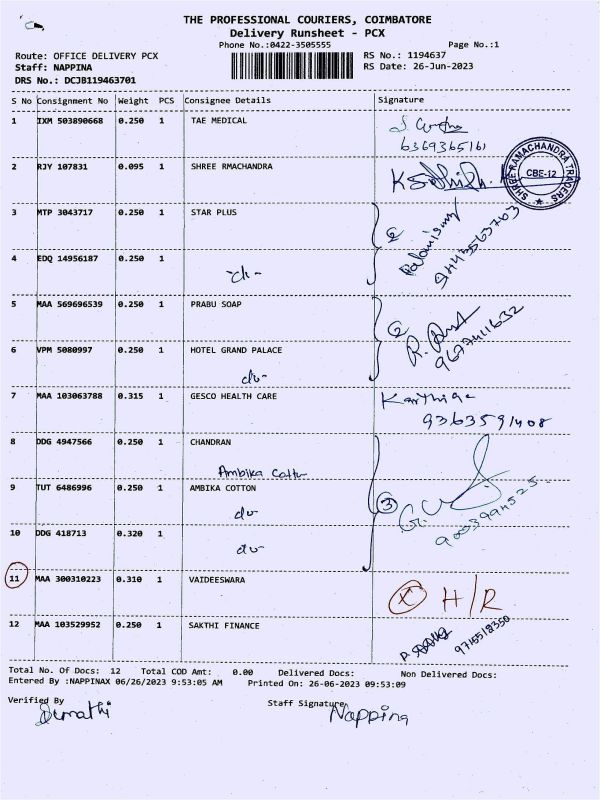 THE PROFESSIONAL COURIERS, COIMBATORE
Delivery Runsheet - PCX
Phone No.:0422-3505555
Page No.:1
Route: OFFICE DELIVERY PCX
RS No.: 1194637
Staff: NAPPINA
RS Date: 26-Jun-2023
DRS No.: DCJB119463701
S No Consignment No Weight PCS Consignee Details Signature
1 IXM 503890668 0.250 1 TAE MEDICAL
6369365161
2 RJY 107831 0.095 1 SHREE RMACHANDRA
SHREE RAMACHANDRA TRADERS
CBE-12
3 MTP 3043717 0.250 1 STAR PLUS
4 EDQ 14956187 0.250 1
9443563763
5 MAA 569696539 0.250 1 PRABU SOAP
6 VPM 5080997 0.250 1 HOTEL GRAND PALACE
9677411632
7 MAA 103063788 0.315 1 GESCO HEALTH CARE
9363591408
8 DDG 4947566 0.250 1 CHANDRAN
9 TUT 6486996 0.250 1 AMBIKA COTTON
3
10 DDG 418713 0.320 1
9003994525
11 MAA 300310223 0.310 1 VAIDEESWARA
X H/R
12 MAA 103529952 0.250 1 SAKTHI FINANCE
9715512350
Total No. Of Docs: 12 Total COD Amt: 0.00 Delivered Docs: Non Delivered Docs:
Entered By :NAPPINAX 06/26/2023 9:53:05 AM Printed On: 26-06-2023 09:53:09
Verified By
Staff Signature
Sumathi
Nappina